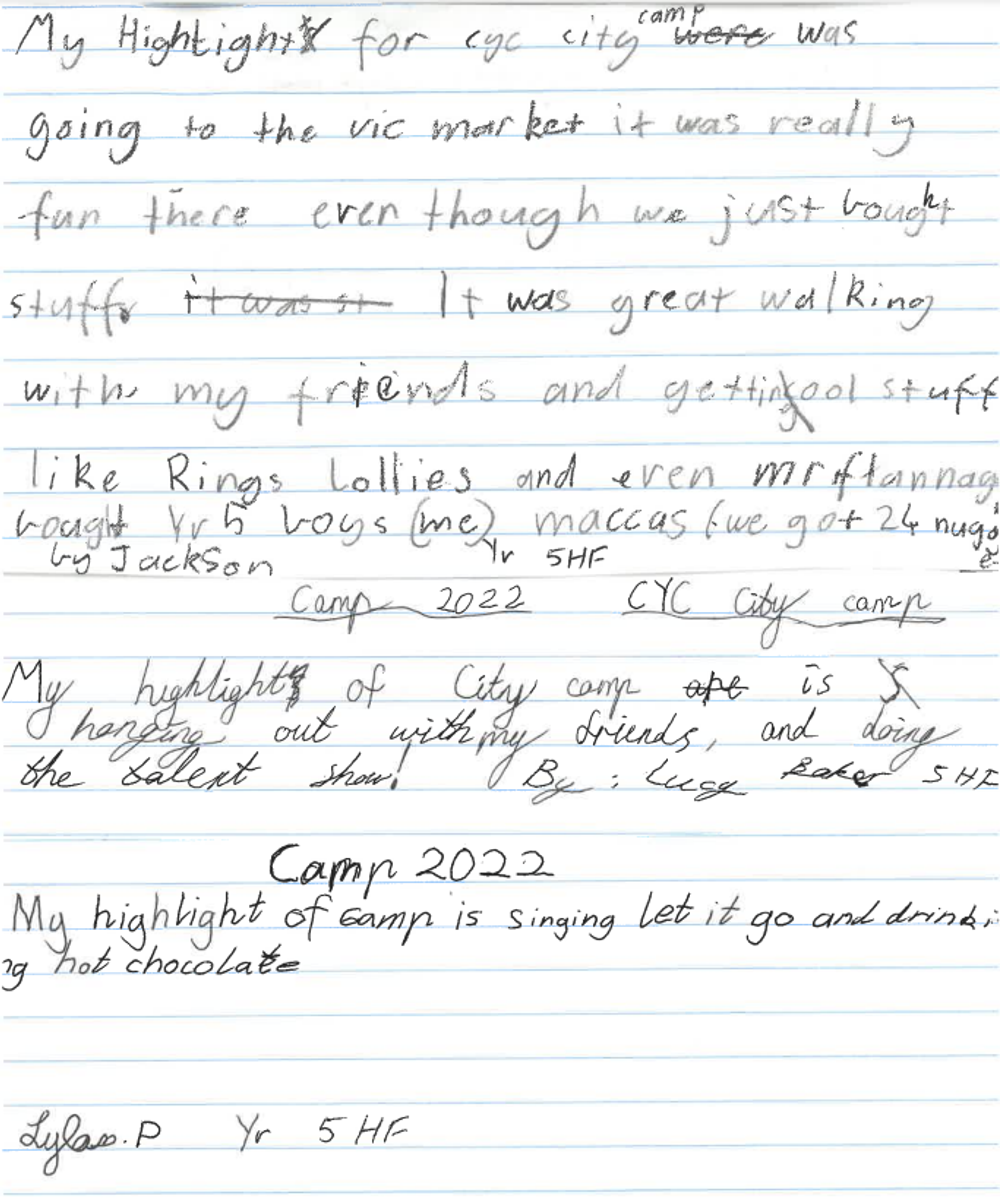 My Hightight for cyc city camp ~~were~~ was
going to the vic market it was really
fun there even though we just bought
stuff ~~it was st~~ It was great walking
with my friends and getting cool stuff
like Rings Lollies and even mr flannag
bought Yr 5 boys (me) maccas (we got 24 nugs
by Jackson Yr 5HF
Camp 2022 CYC City camp
My highlight of City camp ~~are~~ is
hanging out with my friends, and doing
the talent show! By: Lucy Baker 5HF
Camp 2022
My highlight of camp is singing let it go and drinki
ng hot chocolate
P Yr 5 HF